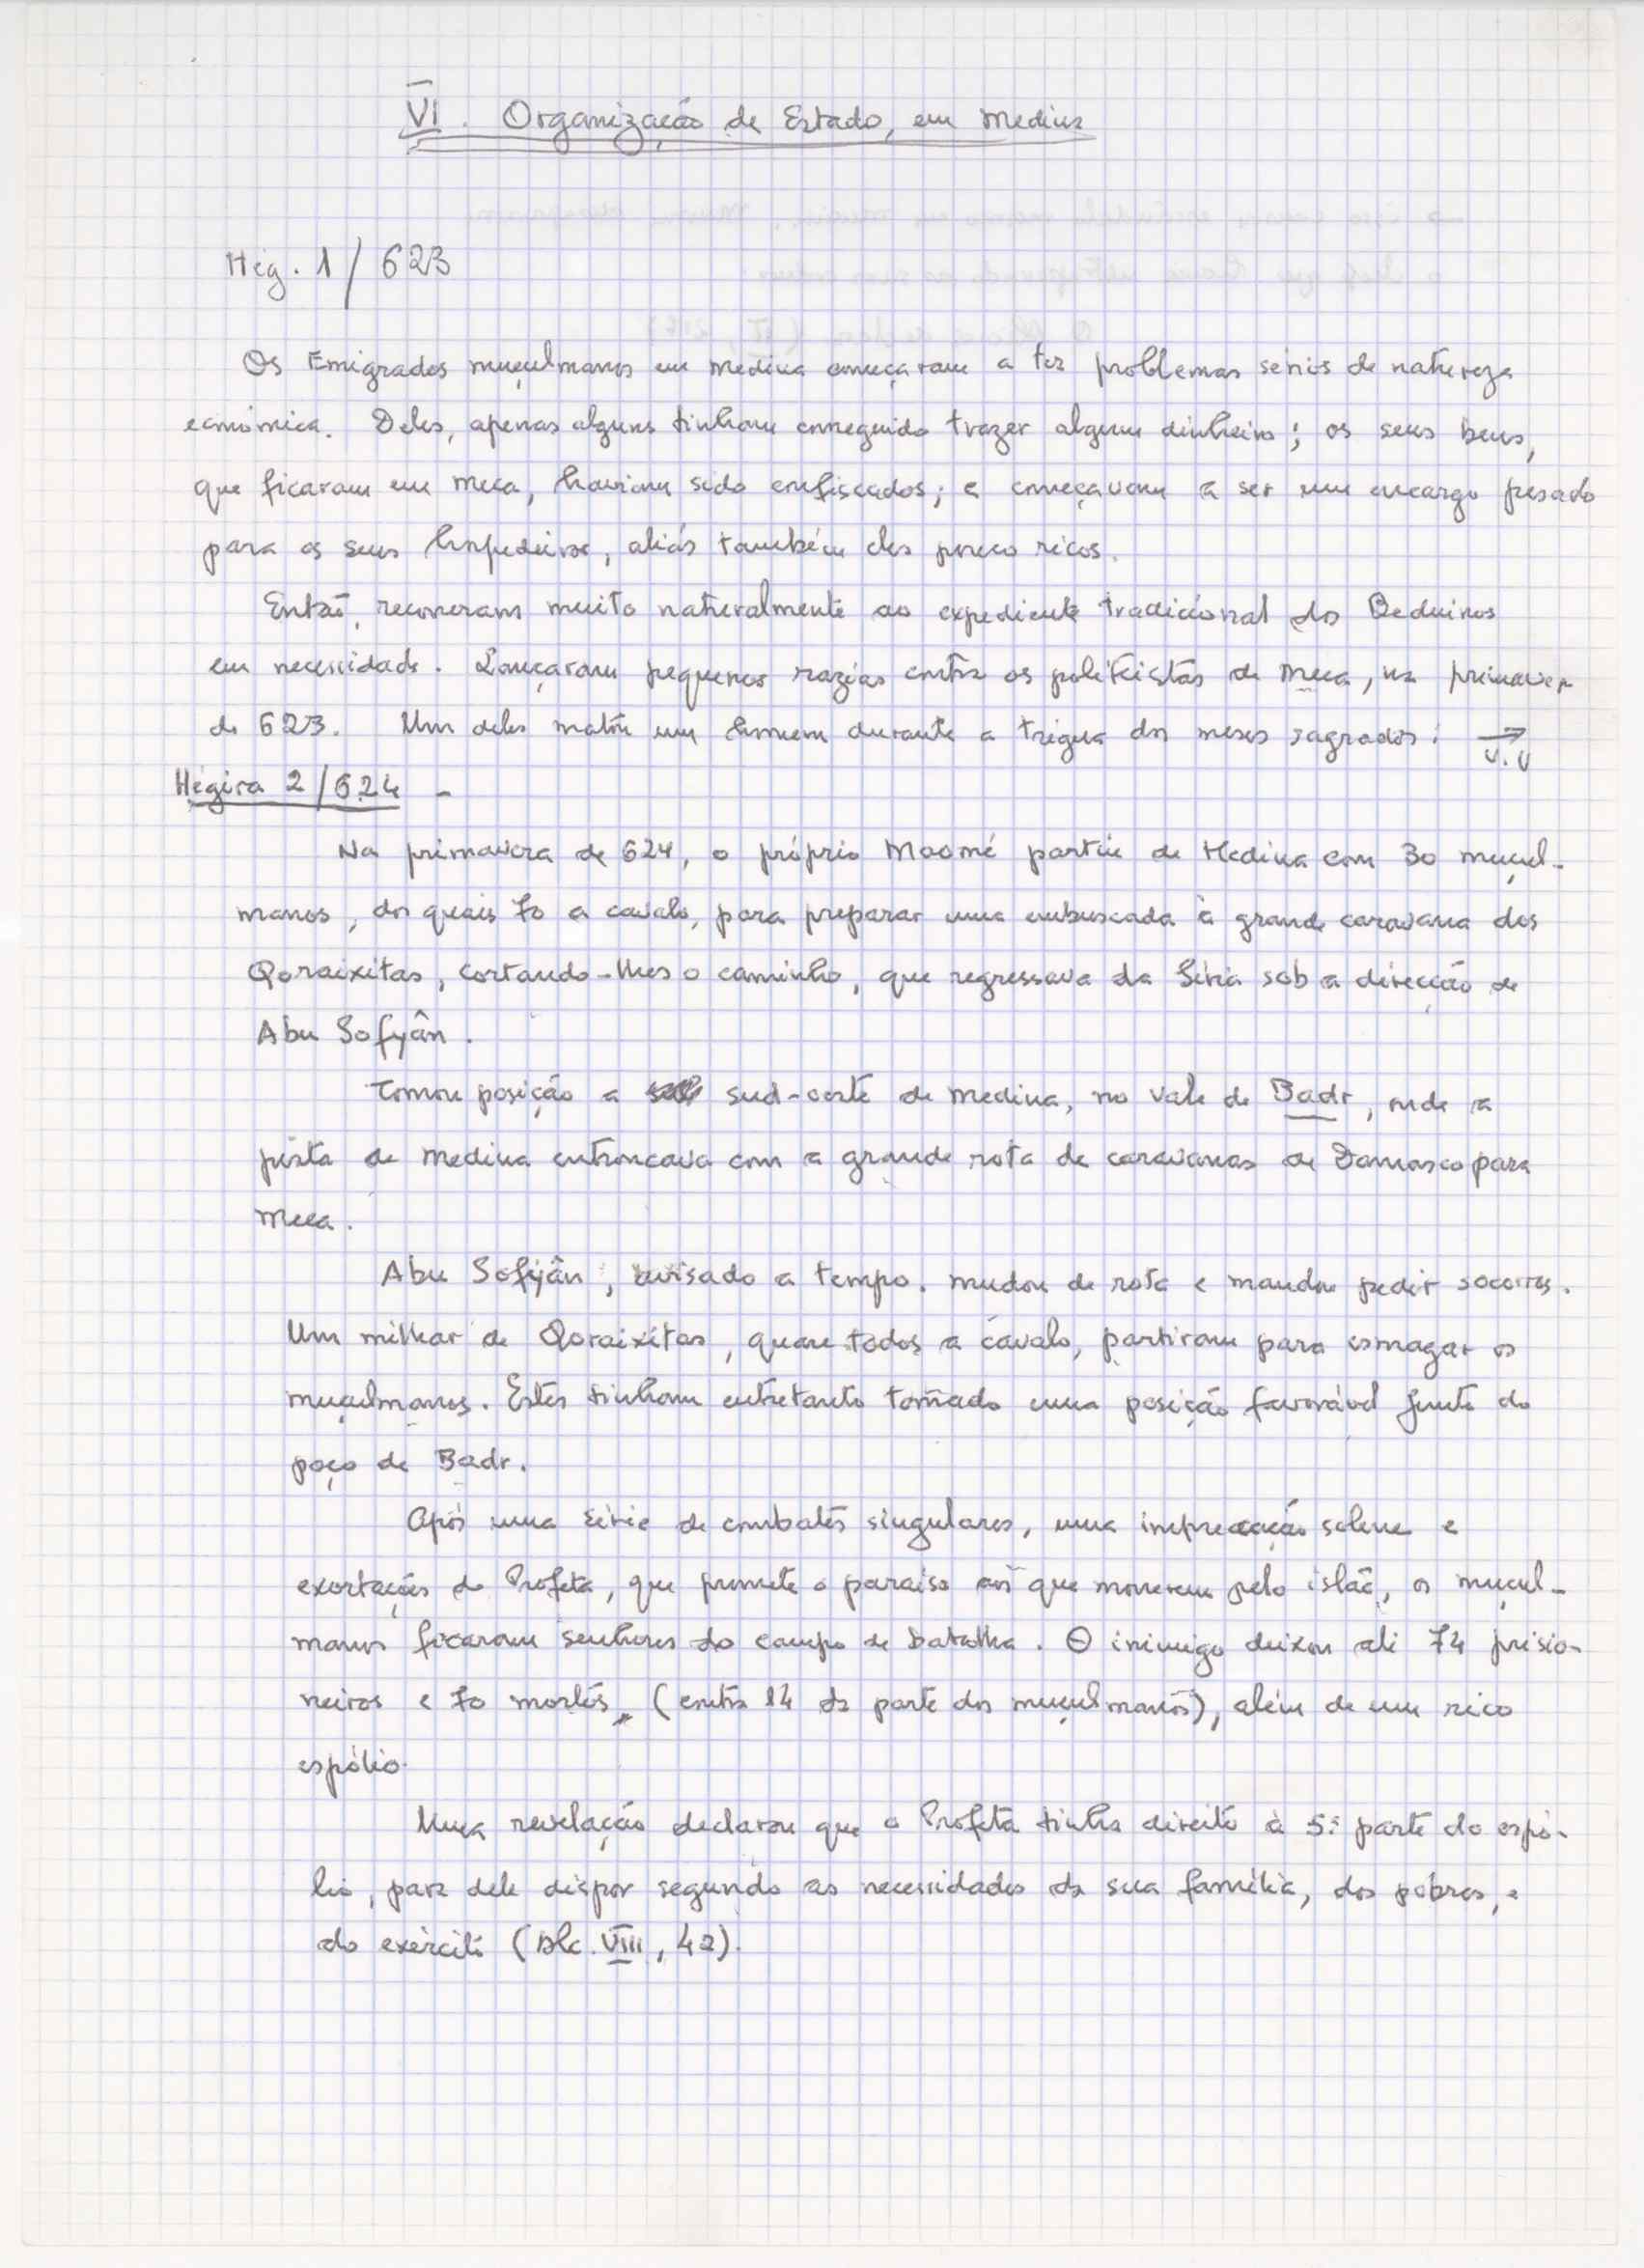 VI. Organização de Estado, em Medina
Hég. 1 / 623
Os Emigrados muçulmanos em Medina começaram a ter problemas sérios de natureza
económica. Deles, apenas alguns tinham conseguido trazer algum dinheiro; os seus bens,
que ficaram em Meca, haviam sido confiscados; e começavam a ser um encargo pesado
para os seus hospedeiros, aliás também eles pouco ricos.
Então, recorreram muito naturalmente ao expediente tradicional dos Beduinos
em necessidade. Lançaram pequenas razias contra os politeístas de Meca, na primavera
de 623. Um deles matou um homem durante a trégua dos meses sagrados: → v.v
Hégira 2/624 -
Na primavera de 624, o próprio Maomé partiu de Medina com 30 muçul-
manos, dos quais 70 a cavalo, para preparar uma embuscada à grande caravana dos
Qoraixitas, cortando-lhes o caminho, que regressava da Síria sob a direcção de
Abu Sofyân.
Tomou posição a sud-oeste de Medina, no vale de Badr, onde a
pista de Medina entroncava com a grande rota de caravanas de Damasco para
Meca.
Abu Sofyân, avisado a tempo. mudou de rota e mandou pedir socorros.
Um milhar de Qoraixitas, quase todos a cavalo, partiram para esmagar os
muçulmanos. Estes tinham entretanto tomado uma posição favorável junto do
poço de Badr.
Após uma série de combates singulares, uma imprecação solene e
exortações do Profeta, que promete o paraíso aos que morrerem pelo islão, os muçul-
manos ficaram senhores do campo de batalha. O inimigo deixou ali 74 prisio-
neiros e 70 mortos (contra 14 da parte dos muçulmanos), além de um rico
espólio.
Uma revelação declarou que o Profeta tinha direito à 5ª parte do espó-
lio, para dele dispor segundo as necessidades da sua família, dos pobres, e
do exército (Alc. VIII, 42).